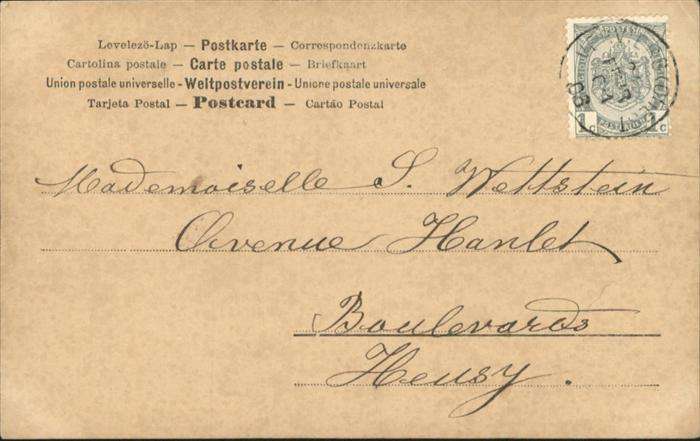 Levelezö-Lap — Postkarte — Correspondenzkarte
Cartolina postale — Carte postale — Briefkaart
Union postale universelle - Weltpostverein - Unione postale universale
Tarjeta Postal — Postcard — Cartão Postal
1 c 1 c
Mademoiselle S. Wettstein
Avenue Hanlet
Boulevards
Heusy.